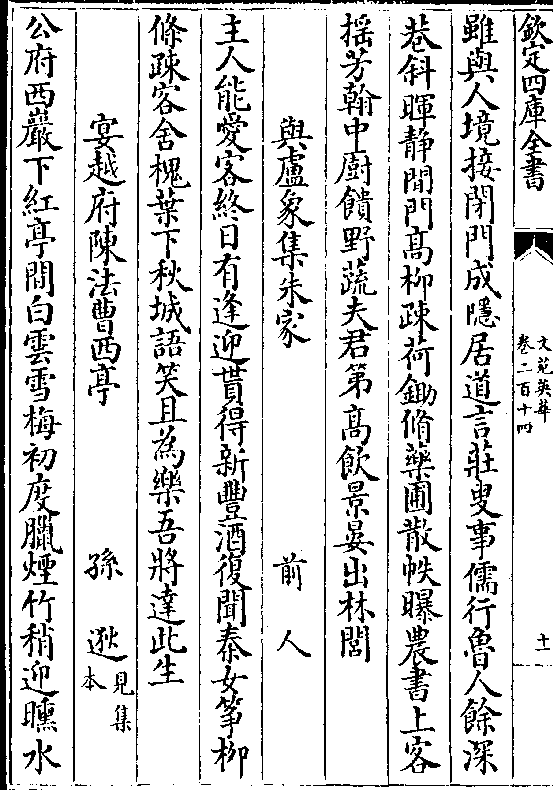 欽定四庫全書
文苑英華
卷二百十四
十一
雖與人境接閉門成隱居道言莊叟事儒行魯人餘深
巷斜暉静閒門高柳疎荷鋤脩藥圃散帙曝農書上客
揺芳翰中厨饋野蔬夫君第高飲景晏出林閭
與盧象集朱家 前人
主人能愛客終日有逢迎貰得新豐酒復聞秦女箏柳
條疎客舍槐葉下秋城語笑且為樂吾將達此生
宴越府陳法曹西亭 孫逖見集本
公府西巖下紅亭間白雲雪梅初度臘煙竹稍迎曛水